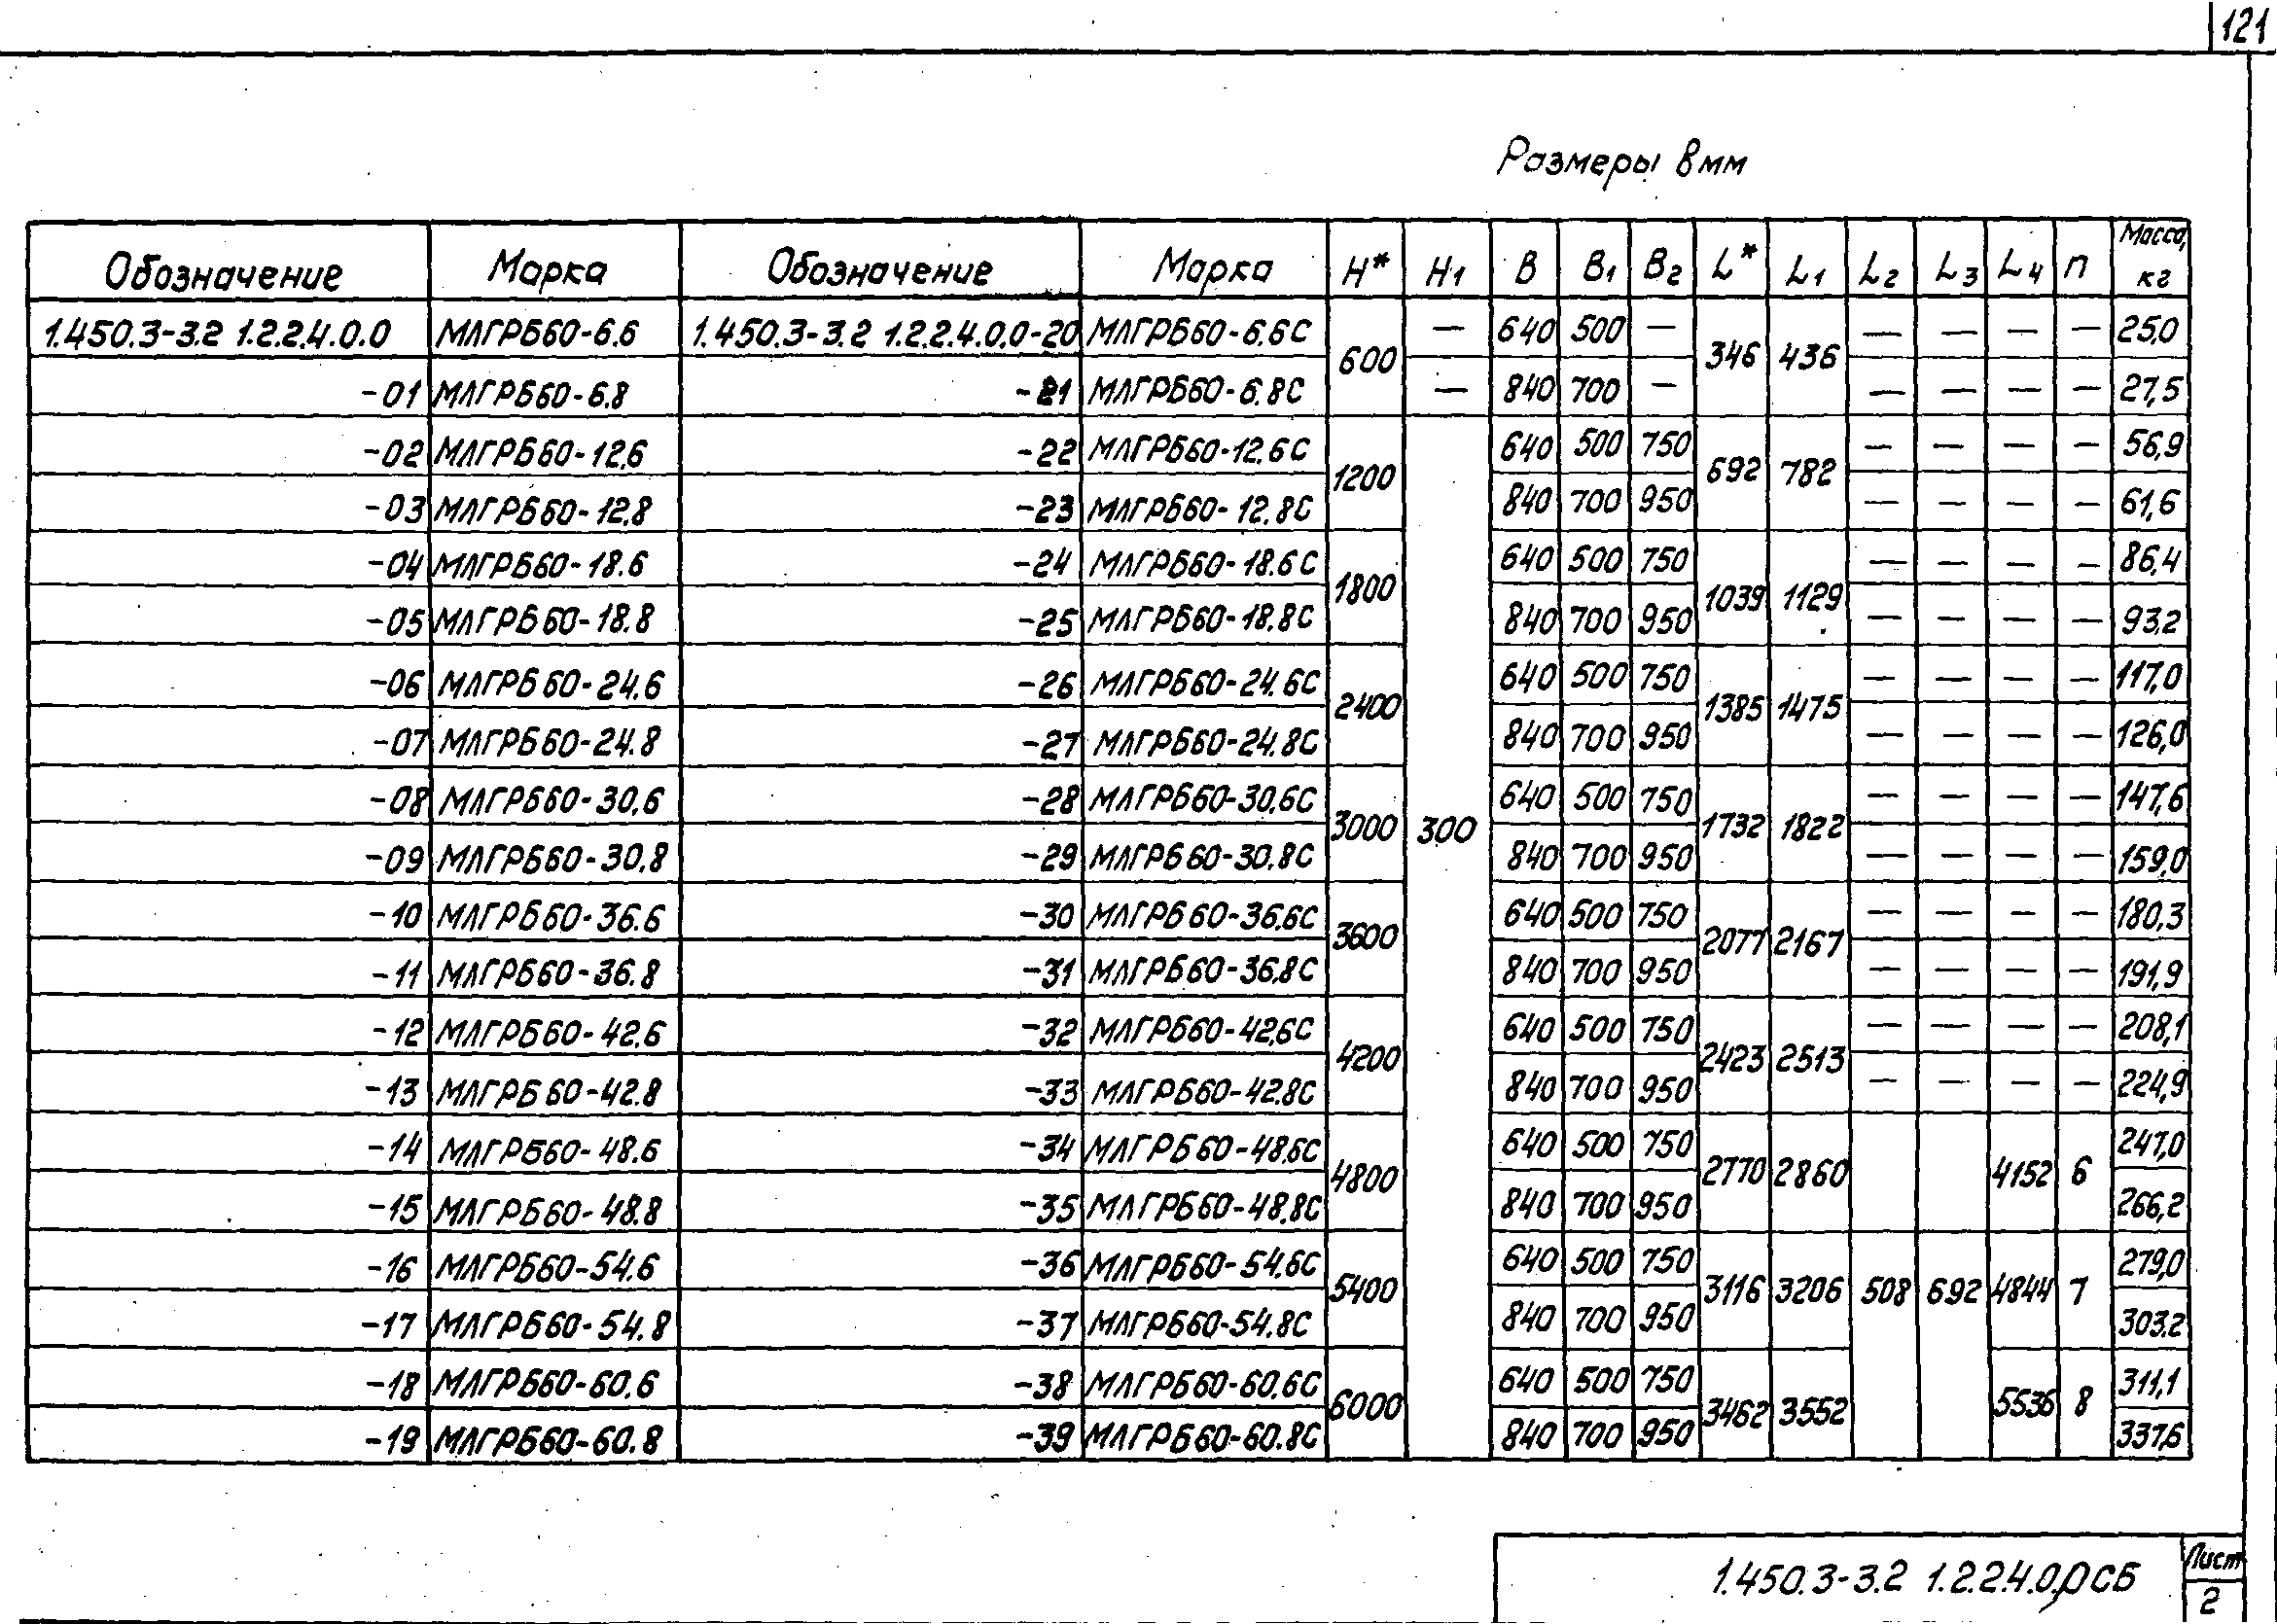 121
Размеры в мм
Обозначение Марка Обозначение Марка H* H1 B B1 B2 L* L1 L2 L3 L4 n Масса, кг
1.450.3-3.2 1.2.2.4.0.0 МЛГРБ60-6.6 1.450.3-3.2 1.2.2.4.0.0-20 МЛГРБ60-6.6С 600 — 640 500 — 346 436 — — — — 25,0
-01 МЛГРБ60-6.8 -21 МЛГРБ60-6.8С — 840 700 — — — — — 27,5
-02 МЛГРБ60-12.6 -22 МЛГРБ60-12.6С 1200 300 640 500 750 692 782 — — — — 56,9
-03 МЛГРБ60-12.8 -23 МЛГРБ60-12.8С 840 700 950 — — — — 61,6
-04 МЛГРБ60-18.6 -24 МЛГРБ60-18.6С 1800 640 500 750 1039 1129 — — — — 86,4
-05 МЛГРБ60-18.8 -25 МЛГРБ60-18.8С 840 700 950 — — — — 93,2
-06 МЛГРБ60-24.6 -26 МЛГРБ60-24.6С 2400 640 500 750 1385 1475 — — — — 117,0
-07 МЛГРБ60-24.8 -27 МЛГРБ60-24.8С 840 700 950 — — — — 126,0
-08 МЛГРБ60-30.6 -28 МЛГРБ60-30.6С 3000 640 500 750 1732 1822 — — — — 147,6
-09 МЛГРБ60-30.8 -29 МЛГРБ60-30.8С 840 700 950 — — — — 159,0
-10 МЛГРБ60-36.6 -30 МЛГРБ60-36.6С 3600 640 500 750 2077 2167 — — — — 180,3
-11 МЛГРБ60-36.8 -31 МЛГРБ60-36.8С 840 700 950 — — — — 191,9
-12 МЛГРБ60-42.6 -32 МЛГРБ60-42.6С 4200 640 500 750 2423 2513 — — — — 208,1
-13 МЛГРБ60-42.8 -33 МЛГРБ60-42.8С 840 700 950 — — — — 224,9
-14 МЛГРБ60-48.6 -34 МЛГРБ60-48.6С 4800 640 500 750 2770 2860 508 692 4152 6 247,0
-15 МЛГРБ60-48.8 -35 МЛГРБ60-48.8С 840 700 950 266,2
-16 МЛГРБ60-54.6 -36 МЛГРБ60-54.6С 5400 640 500 750 3116 3206 4844 7 279,0
-17 МЛГРБ60-54.8 -37 МЛГРБ60-54.8С 840 700 950 303,2
-18 МЛГРБ60-60.6 -38 МЛГРБ60-60.6С 6000 640 500 750 3462 3552 5536 8 311,1
-19 МЛГРБ60-60.8 -39 МЛГРБ60-60.8С 840 700 950 337,6
1.450.3-3.2 1.2.2.4.0.0СБ
Лист
2